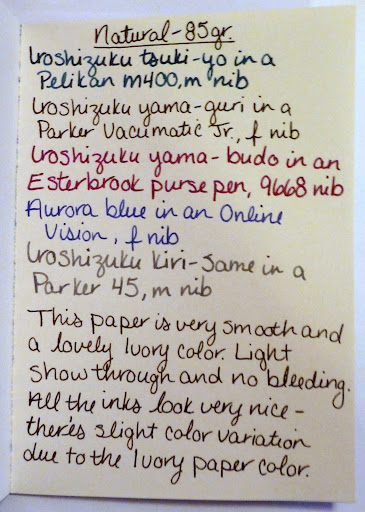 Natural-85gr.
Iroshizuku tsuki-yo in a
Pelikan m400, m nib
Iroshizuku yama-guri in a
Parker Vacumatic Jr., f nib
Iroshizuku yama-budo in an
Esterbrook purse pen, 9668 nib
Aurora blue in an Online
Vision, f nib
Iroshizuku Kiri-same in a
Parker 45, m nib
This paper is very smooth and
a lovely Ivory color. Light
show through and no bleeding.
All the inks look very nice -
there's slight color variation
due to the Ivory paper color.